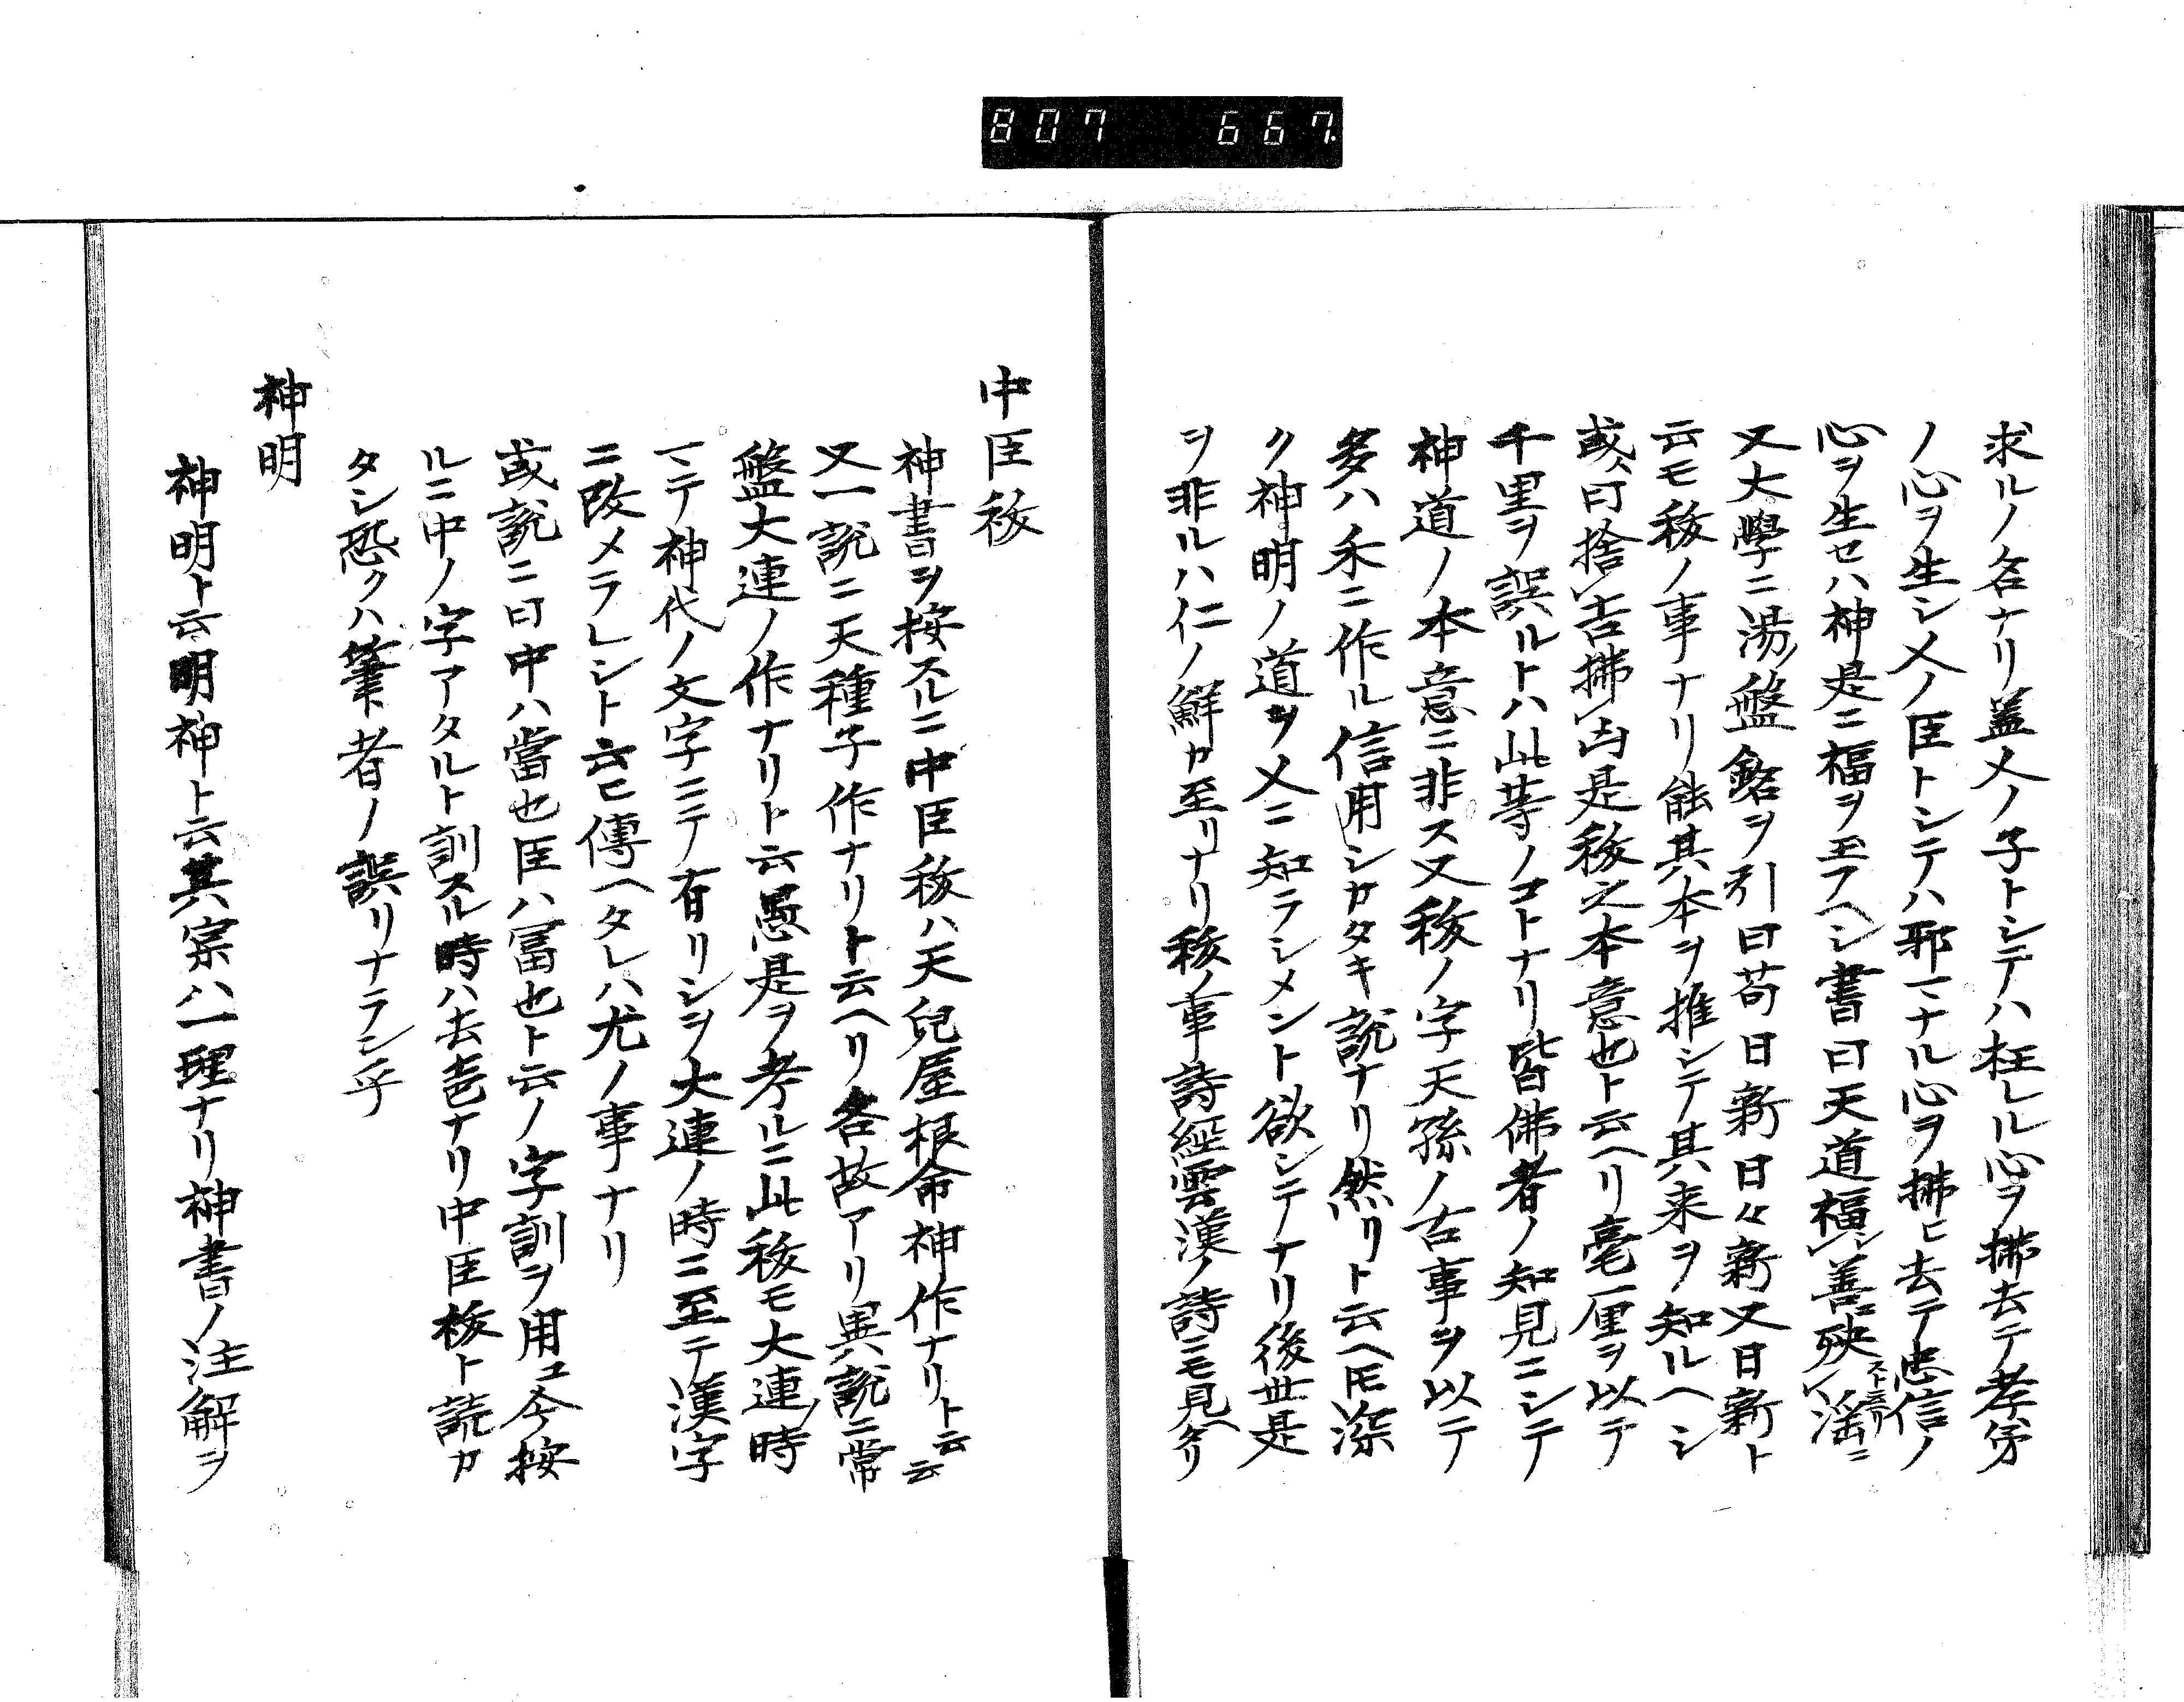 807 667
求ルノ名ナリ蓋人ノ子トシテハ枉レル心ヲ拂去テ孝弟
ノ心ヲ生シ人ノ臣トシテハ邪マナル心ヲ拂ヒ去テ忠信ノ
心ヲ生セハ神是ニ福ヲ玉フヘシ書曰天道福シ善殃シ淫ニ
又大學ニ湯ノ盤銘ヲ引曰苟日新日々新又日新ト
云モ秡ノ事ナリ能其本ヲ推シテ其来ヲ知ルヘシ
或ハ曰捨吉拂凶是秡之本意也ト云ヘリ毫厘ヲ以テ
千里ヲ誤ルトハ此等ノコトナリ皆佛者ノ知見ニシテ
神道ノ本意ニ非ス又秡ノ字天孫ノ古事ヲ以テ
多ハ禾ニ作ル信用シカタキ説ナリ然リト云ヘ𪜈深
ク神明ノ道ヲ人ニ知ラシメント欲シテナリ後世是
ヲ非ルハ仁ノ鮮カ至リナリ秡ノ事詩經雲漢ノ詩ニモ見ヘタリ
中臣秡
神書ヲ按スルニ中臣秡ハ天兒屋根命神作ナリト云云
又一説ニ天種子作ナリト云ヘリ各故アリ異説ニ常
盤大連ノ作ナリト云愚是ヲ考ルニ此秡モ大連ノ時
マテ神代ノ文字ニテ有リシヲ大連ノ時ニ至テ漢字
ニ改メラレシト云ヒ傳ヘタレハ尤ノ事ナリ
或説ニ曰中ハ當也臣ハ富也ト云ノ字訓ヲ用ユ今按
ルニ中ノ字アタルト訓スル時ハ去声ナリ中臣秡ト読カ
タシ恐クハ筆ト者ノ誤リナラン乎
神明
神明ト云明神ト云其宗ハ一理ナリ神書ノ注解ヲ